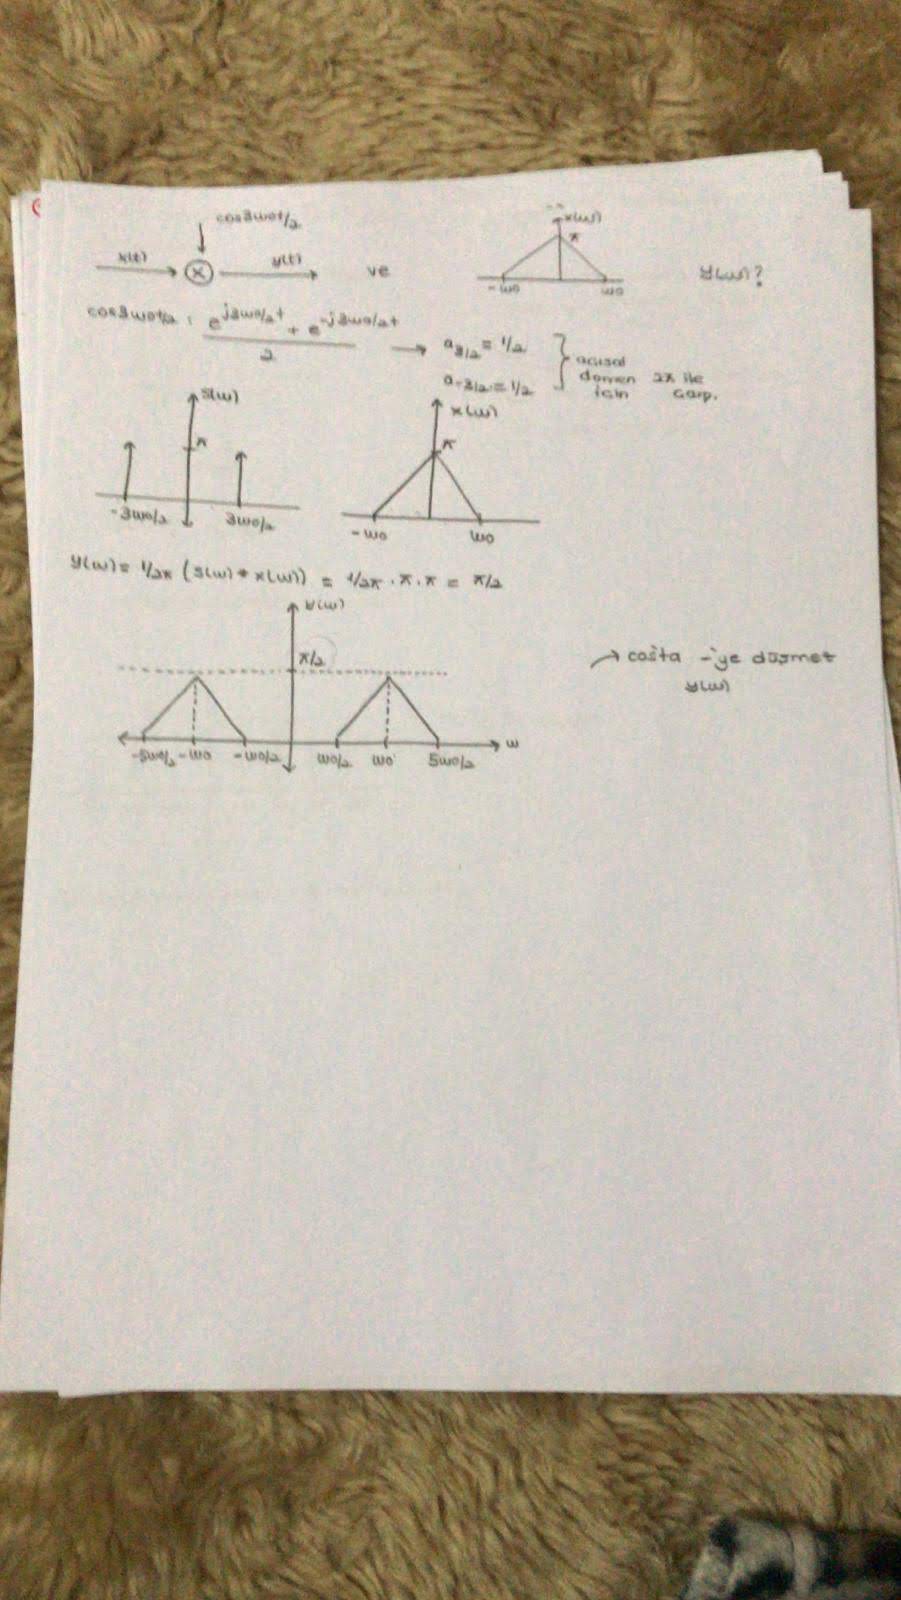 cos3wot/2
x(t) ⊗ y(t) ve x(w) π -wo wo Y(w)?
cos3wot/2 : e^j3wo/2t + e^-j3wo/2t / 2 → a3/2 = 1/2
a-3/2 = 1/2 } acısal domen icin 2π ile carp.
S(w) π -3wo/2 3wo/2
x(w) π -wo wo
Y(w) = 1/2π (S(w) * x(w)) = 1/2π . π . π = π/2
Y(w)
π/2
-5wo/2 -wo -wo/2 wo/2 wo 5wo/2 w
→ cos'ta -'ye düşmet
Y(w)